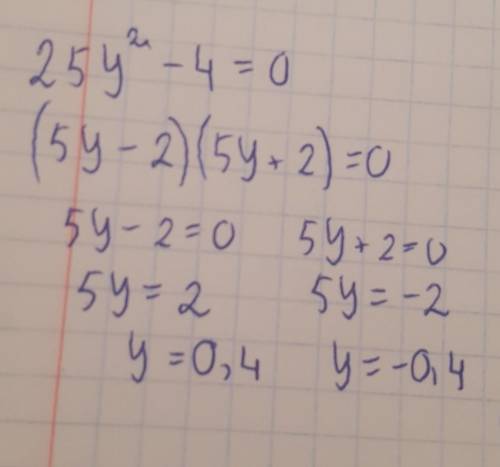 25y² - 4 = 0
(5y - 2)(5y + 2) = 0
5y - 2 = 0 5y + 2 = 0
5y = 2 5y = -2
y = 0,4 y = -0,4